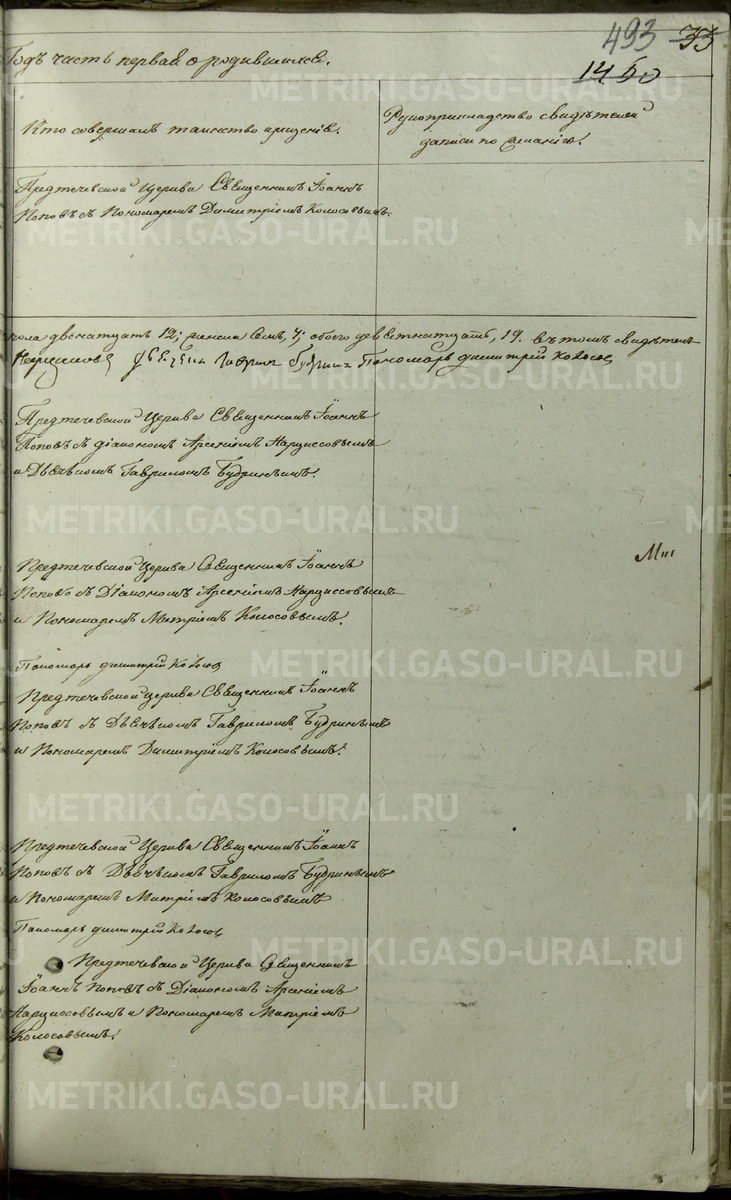 493 33
14 50
Годъ часть первая о родившихся.
Кто совершалъ таинство крещенія.
Рукоприкладство свидѣтелей
записи по желанію.
Предтечевской Церкви Священникъ Іоаннъ
Поповъ съ Пономаремъ Димитріемъ Колосовымъ.
пола двенатцать 12; женска семь, 7; обоего деветнатцать, 19. въ томъ свидѣтель
Гаврилъ Будринъ Пономарь Димитрій Колосов
Предтечевской Церкви Священникъ Іоаннъ
Поповъ съ діакономъ Арсеніемъ Нарциссовымъ
и Дьячкомъ Гавриломъ Будринымъ.
Предтечевской Церкви Священникъ Іоаннъ
Поповъ съ Діакономъ Арсеніемъ Нарциссовымъ
и Пономаремъ Митріемъ Колосовымъ.
Пономарь Димитрій Колосов
Предтечевской церкви Священникъ Іоаннъ
Поповъ съ Дьячкомъ Гавриломъ Будринымъ
и Пономаремъ Димитріемъ Колосовымъ.
Предтечевской Церкви Священникъ Іоаннъ
Поповъ съ Дьячкомъ Гавриломъ Будринымъ
и Пономаремъ Митріемъ Колосовымъ
Пономарь Димитрій Колосов
Предтечевской Церкви Священникъ
Іоаннъ Поповъ съ Діакономъ Арсеніемъ
Нарциссовымъ и Пономаремъ Митріемъ
Колосовымъ.
METRIKI.GASO-URAL.RU